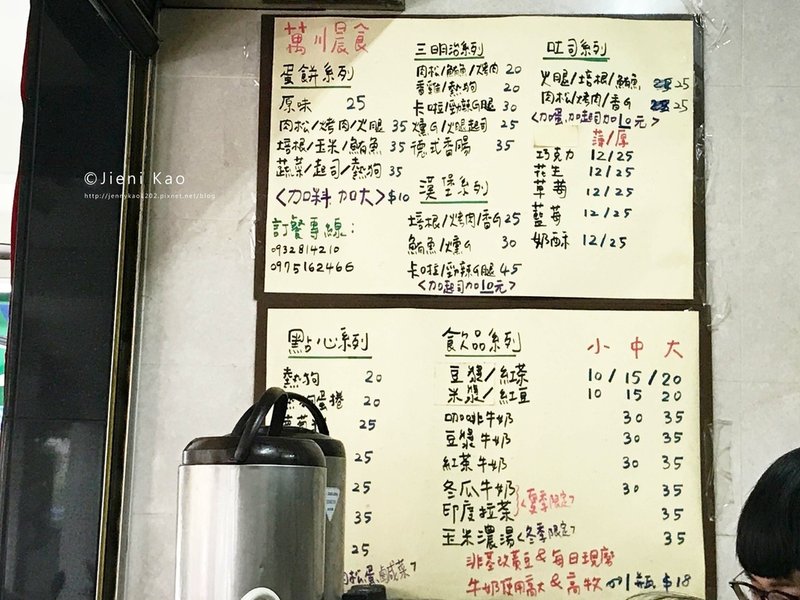 萬川晨食
蛋餅系列
原味 25
肉松/烤肉/火腿 35
培根/玉米/鮪魚 35
蔬菜/起司/熱狗 35
<加料 加大>$10
訂餐專線：
0932814210
0975162466
三明治系列
肉松/鮪魚/烤肉 20
香雞/熱狗 20
卡啦/勁辣G腿 30
燻G/火腿起司 25
德式香腸 35
漢堡系列
培根/烤肉/香G 25
鮪魚/燻G 30
卡啦/勁辣G腿 45
<加起司加10元>
吐司系列
火腿/培根/鮪魚 25
肉松/烤肉/香G 25
<加蛋.加起司加10元>
薄/厚
巧克力 12/25
花生 12/25
草莓 12/25
藍莓 12/25
奶酥 12/25
©Jieni Kao
http://jennykao1202.pixnet.net/blog
點心系列
熱狗 20
蛋捲 20
25
25
35
25
松蛋鹹菜>
飲品系列 小 中 大
豆漿/紅茶 10/15/20
米漿/紅豆 10 15 20
咖啡牛奶 30 35
豆漿牛奶 30 35
紅茶牛奶 30 35
冬瓜牛奶 30 35
印度拉茶 <夏季限定> 35
玉米濃湯<冬季限定> 35
非基改黃豆&每日現磨
牛奶使用高大&高牧 1瓶$18